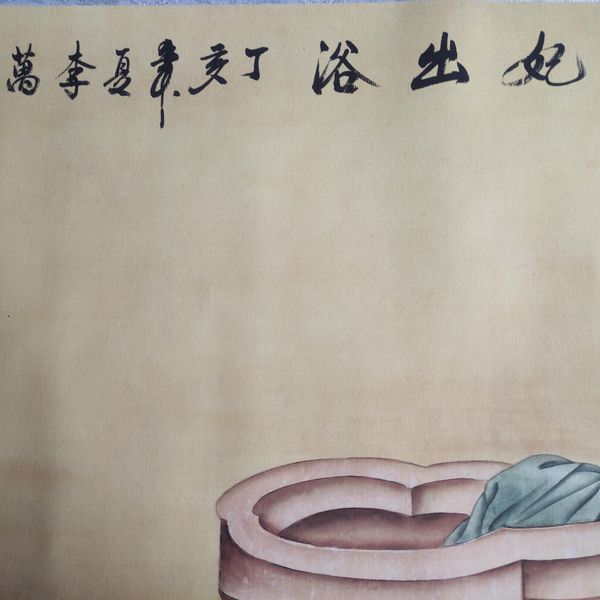 妃出浴 丁亥年夏李萬